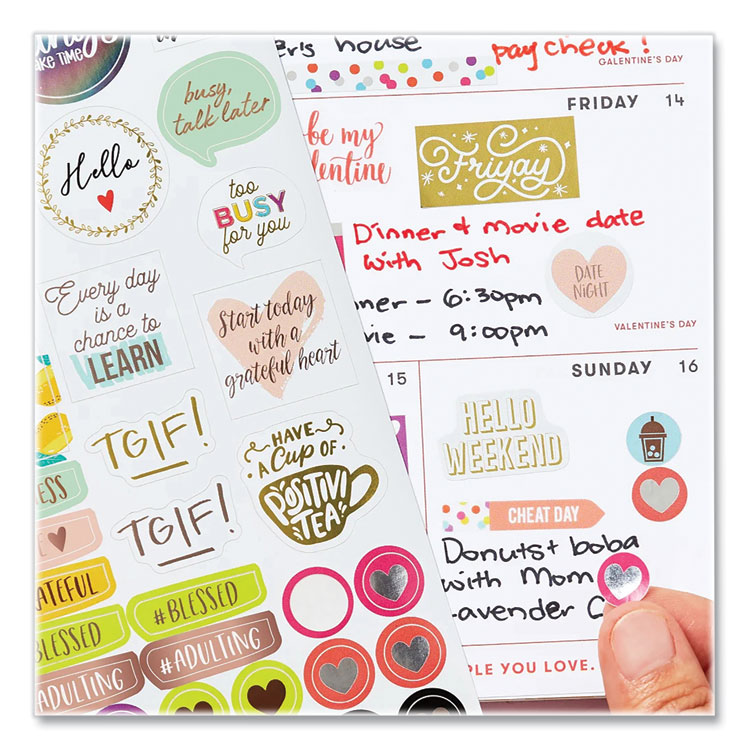 AKE TIME
busy,
talk later
Hello
too
BUSY
for you
Every day
is a
chance to
LEARN
Start today
with a
grateful heart
TGIF!
HAVE
A CUP OF
POSITIVI
TEA
TGIF!
ESS
RATEFUL
#BLESSED
BLESSED
#ADULTING
ADULTING
er's house
pay check!
GALENTINE'S DAY
FRIDAY 14
be my
lentine
Friyay
Dinner & movie date
with Josh
DATE
NIGHT
ner – 6:30pm
vie – 9:00pm
VALENTINE'S DAY
15
SUNDAY 16
HELLO
WEEKEND
CHEAT DAY
Donuts + boba
with Mom
Lavender C
PLE YOU LOVE.